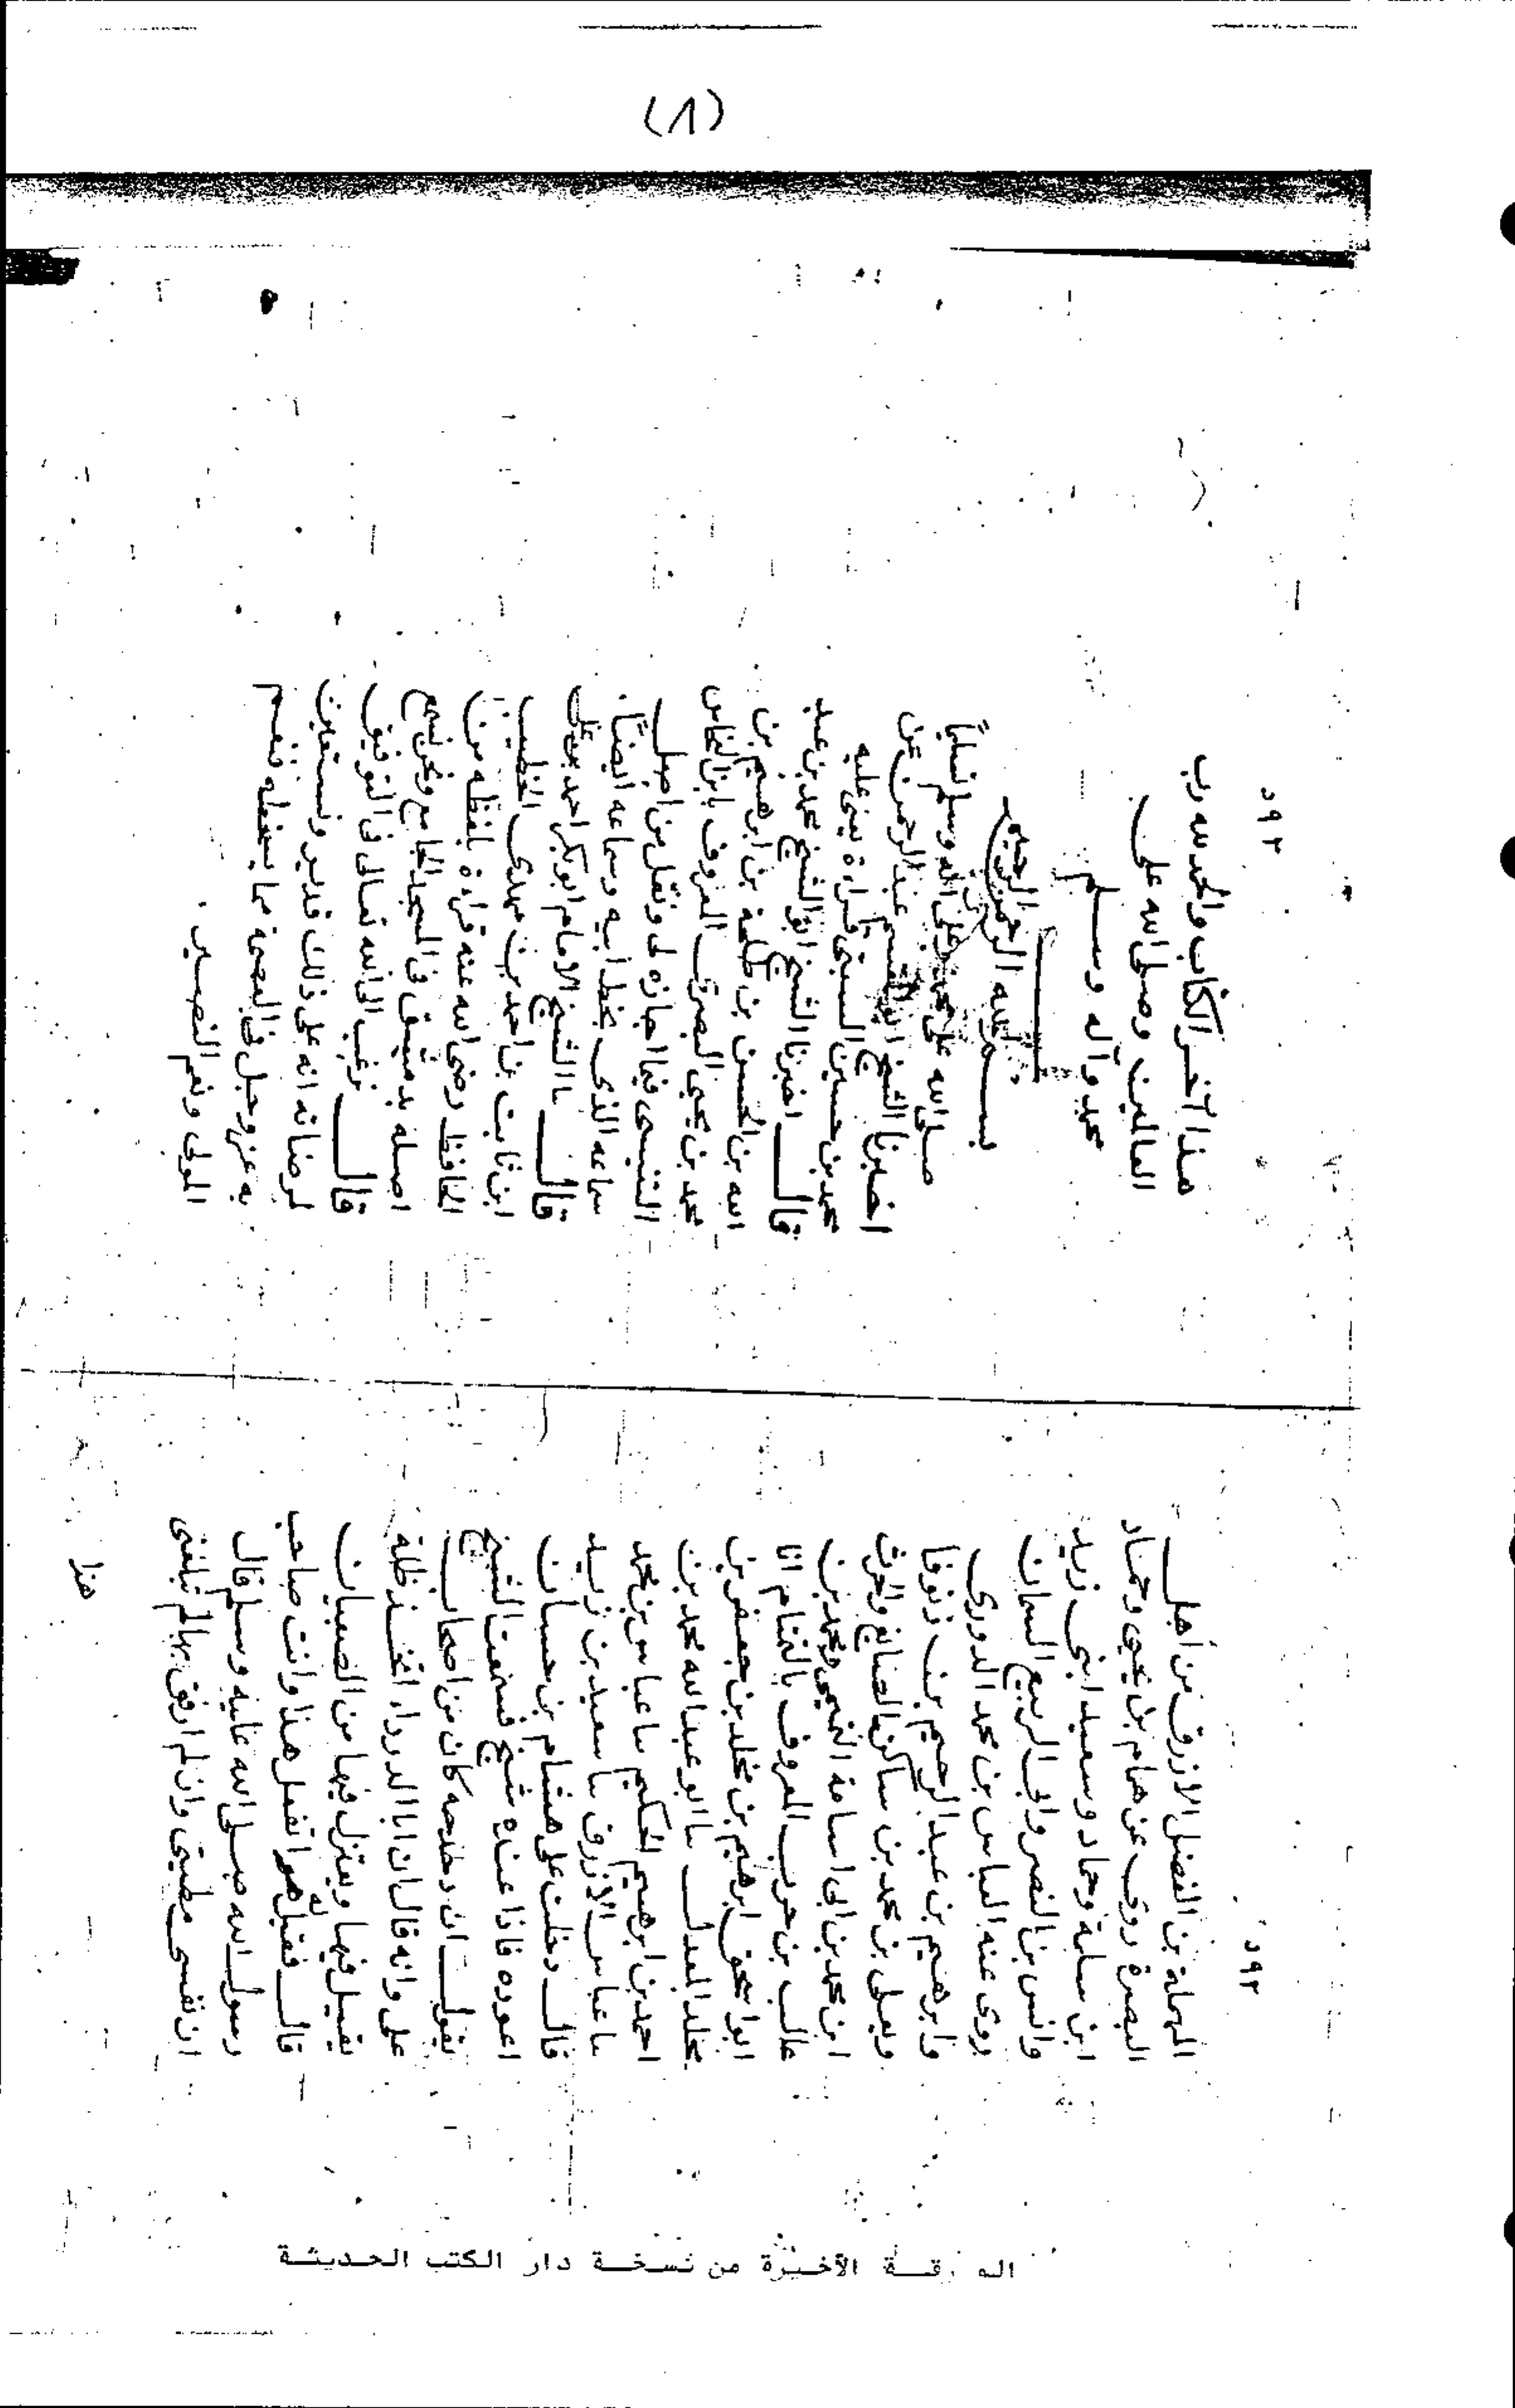 (١)
٥٩٢
المهملة بن الفضل الازرق من أهل
البصرة روى عن همام بن يحيى وحماد
ابن سلمة وحماد وسعيد ابنى زيد
وانس بن النضر وابى الربيع السمان
روى عنه العباس بن محمد الدورى
وابرهيم بن عبد الرحيم بن دنوقا
ويعلى بن محمد بن ساكن الصائغ والحرث
ابن محمد بن ابى اسامة التميمى ومحمد بن
غالب بن حرب المعروف بالتمتام انا
ابو اسحق ابرهيم بن مخلد بن جعفر بن
مخلد المعدل نا ابو عبد الله محمد بن
احمد بن ابرهيم الحكيم نا عباس بن محمد
نا عباس الازرق نا سعيد بن زيد
قال دخلت على هشام بن حسان
اعوده فاذا عنده شيخ فسمعت الشيخ
يقول ان دخدحه كان من اصحاب
على وانه قال ان ابا الدرداء اتخذ ظلة
يقيل فيها وينزل فيها من الصبيان
قال فقيل له اتفعل هذا وانت صاحب
رسول الله صلى الله عليه وسلم قال
ان نفسى مطيتى وان لم ارفق بها لم تبلغنى
هذا
٥٩٣
هذا آخر الكتاب والحمد لله رب
العالمين وصلى الله على
محمد وآله وسلم
بسم الله الرحمن الرحيم
صلى الله على محمد وعلى اله وسلم تسليماً
اخبرنا الشيخ عبد الرحمن بن
محمد بن حسين السبتى قراءة منى عليه
قال اخبرنا الشيخ ابو الشيخ محمد بن عبد
الله بن الحسين بن طلحة بن ابرهيم بن
محمد بن يحيى البصرى المعروف بابن النخاس
التنيسى فيما اجازه لى ونقل من اصل
سماعه الذى بخط ابيه وسماعه ايضاً
قال نا الشيخ الامام ابو بكر احمد بن على
ابن ثابت بن احمد بن مهدى الخطيب
الحافظ رضى الله عنه قراءة بلفظه من
اصله بدمشق فى المسجد الجامع ونحن نسمع
قال نرغب الى الله تعالى فى التوفيق
لمرضاته انه على ذلك قدير ونستعين
به عز وجل فى العصمة مما يسخطه فنعم
المولى ونعم النصير
الورقة الأخيرة من نسخة دار الكتب الحديثة